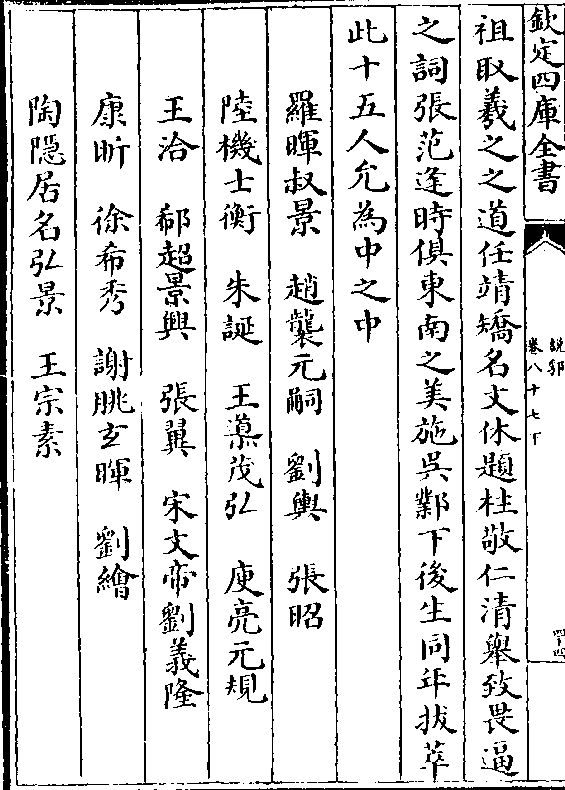 欽定四庫全書
說郛
卷八十七下
四十四
祖取羲之之道任靖矯名文休題柱敬仁清舉致畏逼
之詞張范逢時俱東南之美施吳鄴下後生同年拔萃
此十五人允為中之中
羅暉叔景 趙襲元嗣 劉輿 張昭
陸機士衡 朱誕 王導茂弘 庾亮元規
王洽 郗超景興 張翼 宋文帝劉義隆
康昕 徐希秀 謝朓玄暉 劉繪
陶隱居名弘景 王宗素